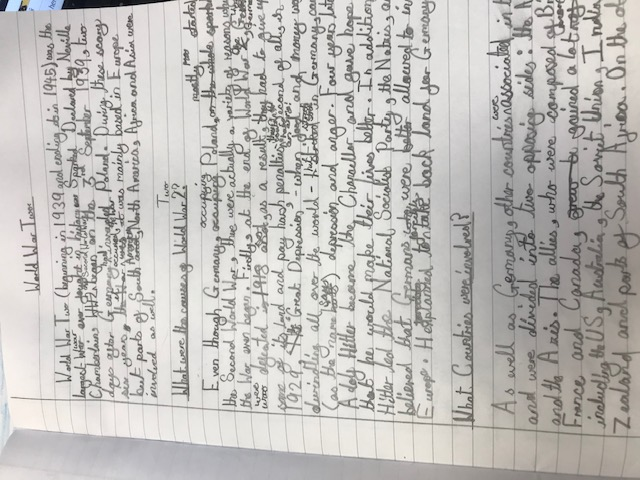 World War Two
World War Two (beginning in 1939 and ending in 1945) was the
longest War ever fought
Chamberlain on Sunday the 3rd September 1939, two
days after Germany Poland. During these
year years it was mainly based in Europe
but parts of South America, North America, Africa and Asia were
involved as well.
What were the causes of World War Two?
Even though Germany occupying Poland mostly started
the Second World War, there were actually a variety of reasons why
the War even began. Firstly, at the end of World War 1,
were defeated in 1918 and as a result, they had to give up
some of its land and pay harsh penalties. Second of all, in
1929, the Great Depression, when jobs and money
dwindling all over the world
(as the name says) depression and anger. Four years later
Adolf Hitler became the Chancellor and gave hope
that he would make their lives better. In addition
Hitler led the National Socialist Party, the Nazis, and
believed that Germans were allowed to
Europe. He planned to take back land for Germany
What Countries were involved?
As well as Germany, other countries were associated in the
and were divided into two opposing sides: the A
and the Axis. The allies, who were composed of
France and Canada, gained a lot
including the US, Australia, the Soviet Union, India
Zealand and parts of South Africa. On the o